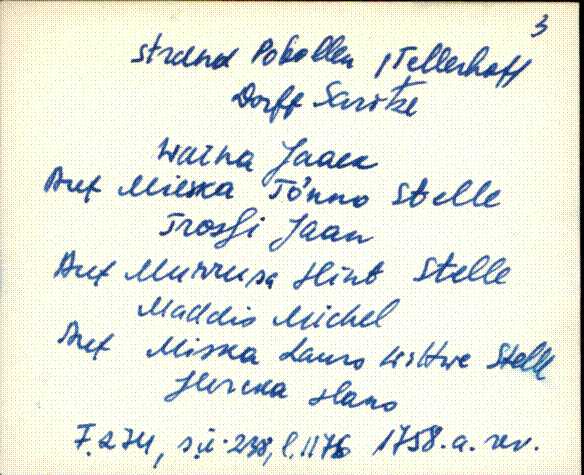 3
Strand Pokallen /Tellerhoff
Dorff Saritze
Waina Jaack
Auf Mieska Tönno Stelle
Trossi Jaan
Auf Murrusa Hint Stelle
Maddis Michel
Auf Miska Laurs Wittwe Stelle
Hans
F.274, s.ü. 238, l.1176 1758.a. rev.